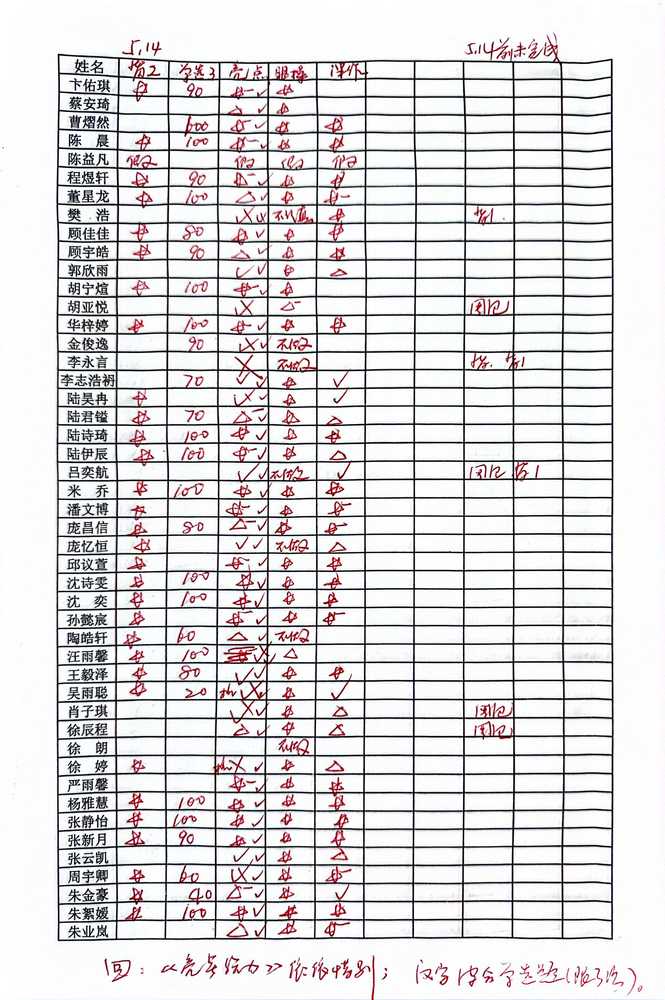 5.14 5.14前未完成
姓名 背2 学选3 亮点 眼操 课作
卞佑琪 ☆ 90 ☆- ✓ ☆
蔡安琦 △ ✓ ☆
曹熠然 100 ☆- ✓ ☆ ☆
陈晨 ☆ 100 ☆- ✓ ☆ ☆
陈益凡 假 假 假 假
程煜轩 ☆ 90 △- ✓ ☆ ☆
董星龙 ☆ 100 △ ✓ ☆ ☆-
樊浩 ✓ ☆ 背1.
顾佳佳 ☆ 80 ☆ ✓ ☆ ☆
顾宇皓 ☆ 90 △ ✓ ☆ ☆
郭欣雨 ✓ ✓ ☆ △
胡宁煊 ☆ 100 ☆- ✓ ☆
胡亚悦 ╳ △-
华梓婷 ☆ 100 ☆- ✓ ☆ ☆
金俊逸 90 ✓ 不做
李永言 ╳ 不做 背1
李志浩礽 70 ✓ ✓ ☆ ✓
陆昊冉 ☆ ✓ ☆ ✓
陆君镒 ☆ 70 △- ✓ ☆ △
陆诗琦 ☆ 100 ☆ ✓ ☆ ☆
陆伊辰 ☆ 100 ☆- ✓ ☆ △
吕奕航 ✓ ✓ 不做 ✓ 背1
米乔 ☆ 100 ☆ ✓ ☆ ☆
潘文博 ☆ ☆- ✓ ☆ ☆-
庞昌信 ☆ 80 △- ✓ ☆ ☆-
庞忆恒 ☆ ✓ ✓ 不做 △
邱议萱 ☆ ☆- ✓ ☆ ☆
沈诗雯 ☆ 100 ☆ ✓ ☆ ☆-
沈奕 ☆ 100 ☆ ✓ ☆ ☆
孙懿宸 ☆ ☆- ✓ ☆ ☆-
陶皓轩 ☆ 60 △ ✓ 不做
汪雨馨 ☆ 100 △
王毅泽 ☆ 80 ✓ ✓ ☆ ☆
吴雨聪 ☆ 20 ☆ ✓
肖子琪 ✓ ☆ △
徐辰程 △ ✓ ☆ △
徐朗 不做
徐婷 ☆ ╳ ✓ ☆ △
严雨馨 ☆- ✓ ☆ ☆
杨雅慧 ☆ 100 ☆ ✓ ☆ ☆
张静怡 ☆ 100 ☆ ✓ ☆ ☆
张新月 ☆ 90 ☆- ✓ ☆ ☆-
张云凯 ✓ ✓ ☆ △
周宇卿 ☆ 60 ✓ ☆ ☆-
朱金豪 ☆ 40 △- ✓ ☆ ✓
朱絮媛 ☆ 100 ☆ ✓ ☆ ☆
朱业岚 △ ✓ ☆ ☆-
回：《亮点给力》依依惜别；汉字 学选题